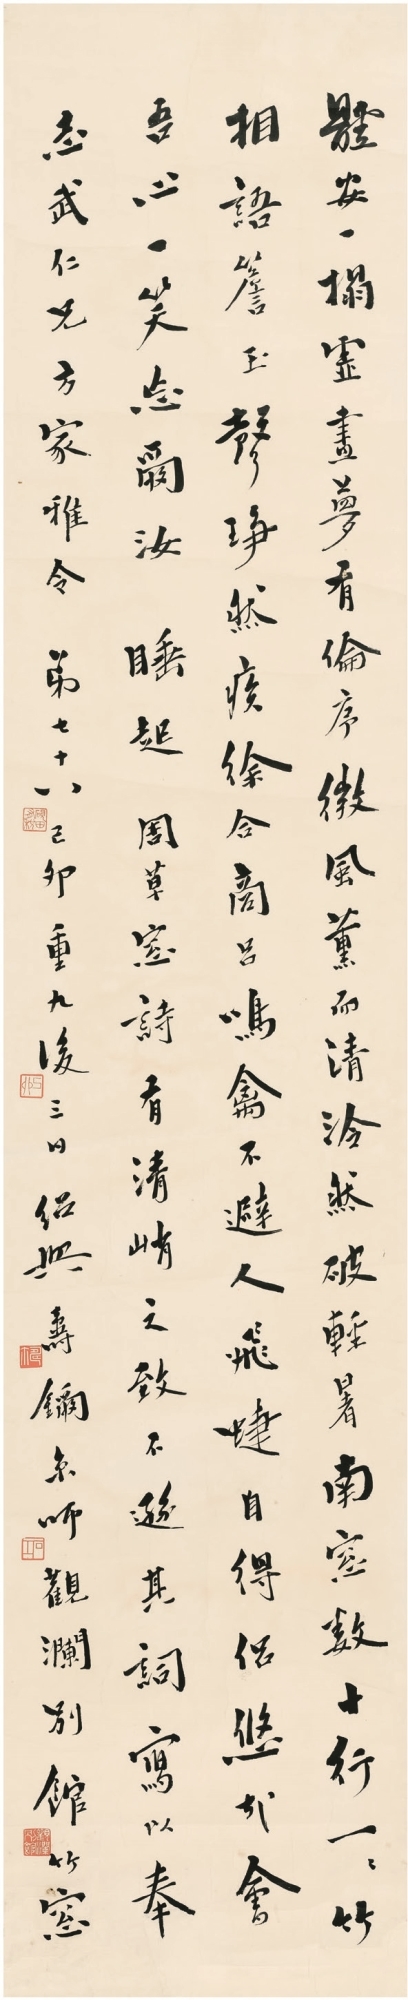 體安一榻靈晝夢有倫序微風薰而清泠然破輕暑南窓数十行一〻竹
相語簷玉聲琤然疾徐合商呂鳴禽不避人飛蜨自得侶悠哉會
吾心一笑忘爾汝 睡起 周草窓詩有清峭之致不遜其詞寫以奉
志武仁兄方家雅令 弟七十八 己卯重九後三日紹興壽鑈京師觀瀾別館竹窓